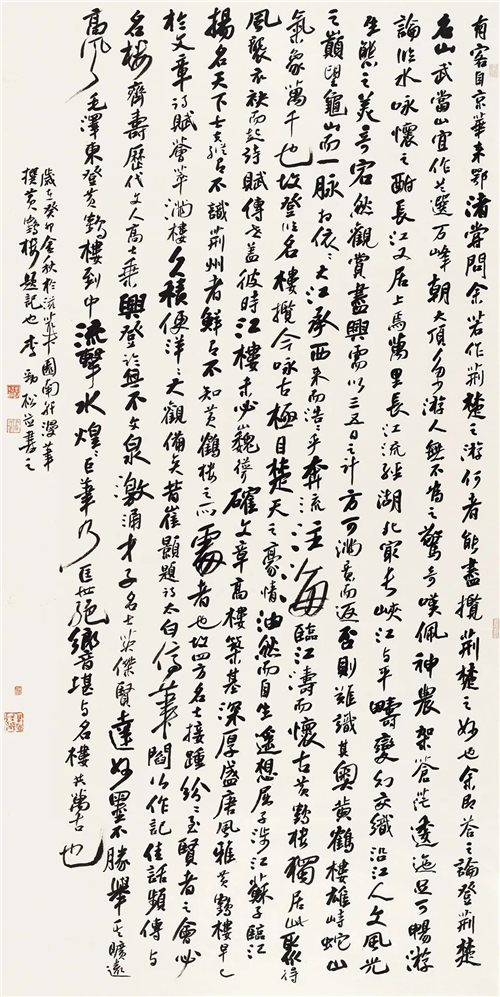 有客自京華来鄂渚嘗問余若作荆楚之游何者能盡攬荆楚之妙也余即答之論登荆楚
名山武當山宜作首選万峰朝大頂令游人無不為之驚奇嘆佩神農架蒼茫逶迤且可暢游
論临水咏懷之酣長江又居上焉萬里長江流經湖北最長峡江与平疇變幻交織沿江人文風光
生態之美可容然觀賞盡興需以三五日之計方可满意而返否則難識其奥黄鶴樓雄峙蛇山
之巔望龜山而一脉相依大江承西来而浩乎奔流注海臨江濤而懷古黄鶴楼獨居此聚得
氣象萬千也故登临名樓攬今咏古極目楚天之豪情油然而自生遥想屈子涉江蘇子臨江
風襲衣袂而起詩賦傳世盖彼時江樓未必巍峩確文章高樓築基深厚盛唐風雅黄鶴樓早已
揚名天下士夫不識荆州者鮮有不知黄鶴楼之所處者也故四方名士接踵纷纷至賢者之會必
於文章詩賦薈萃满樓久積便洋洋大觀備矣昔崔顥題詩太白停筆閻公作記佳話頻傳与
名楼齊壽歷代文人高士乘興登临無不文泉激涌才子名士英傑賢達妙墨不勝舉其曠遠
高風乃毛澤東登黄鶴樓到中流擊水煌煌巨筆乃旷世絕響堪与名樓共萬古也
歲在癸卯金秋於國南社漫筆
撰黄鶴楼題記也李勁松并書之